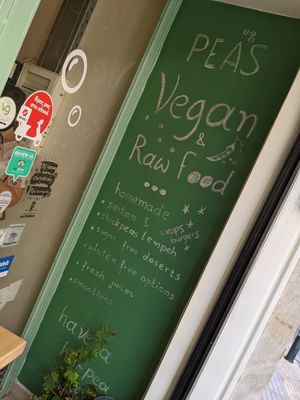 PEAS
Vegan
&
Raw Food
homemade
• seitan & wraps
burgers
• chickpeas tempeh
• sugar free deserts
• gluten free options
• fresh juices
• smoothies
have a
pea